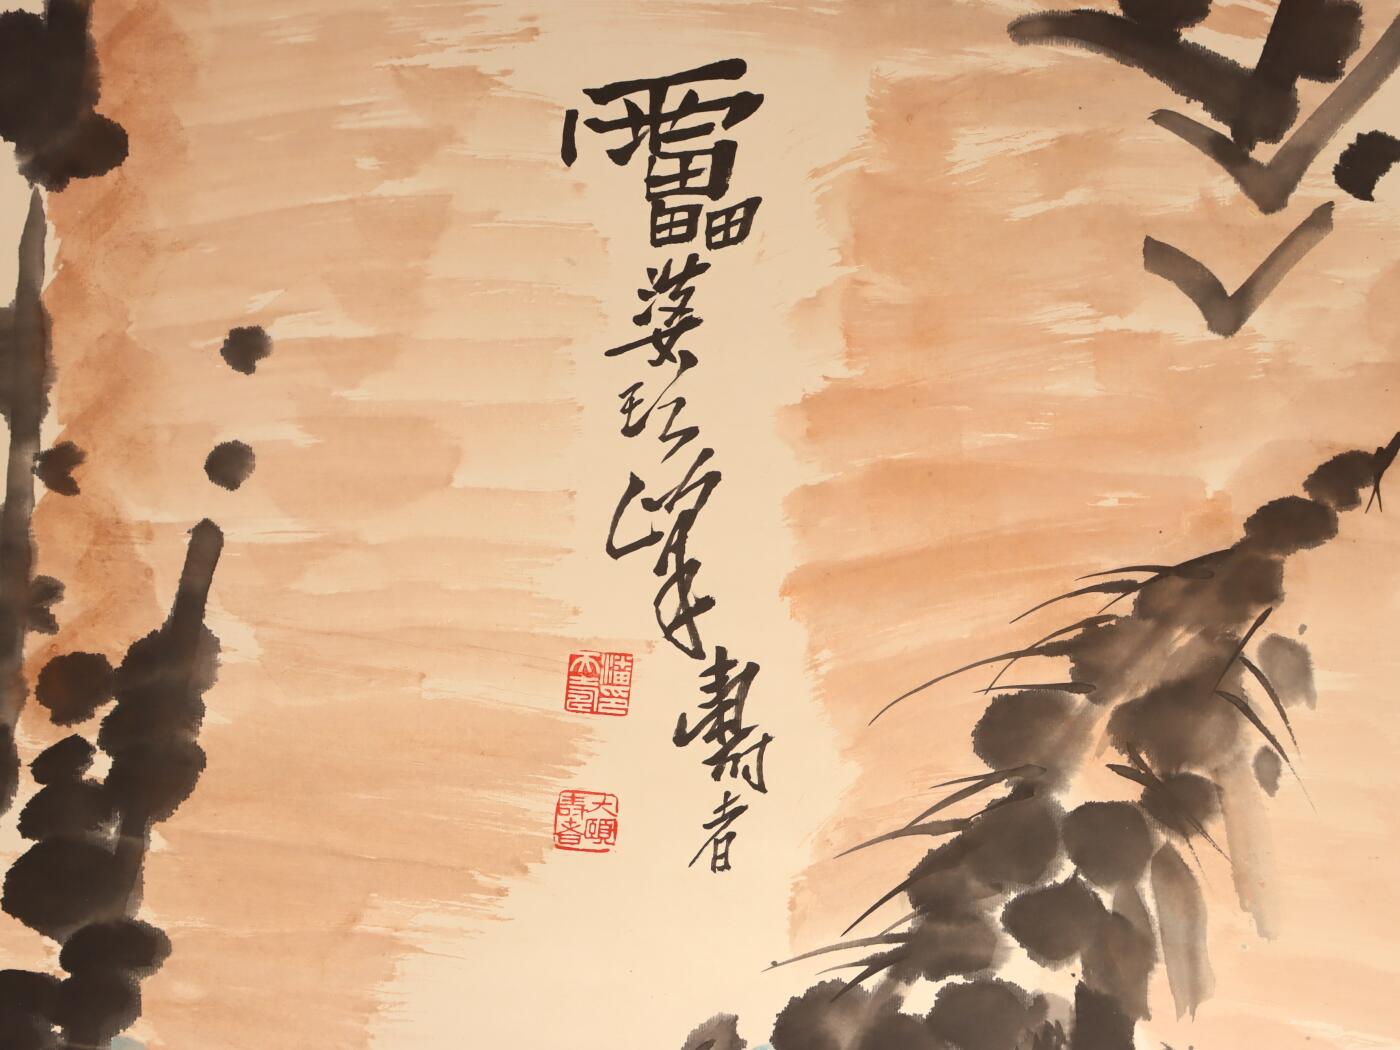 靁婆頭峰壽者
潘天壽印
大頤壽者